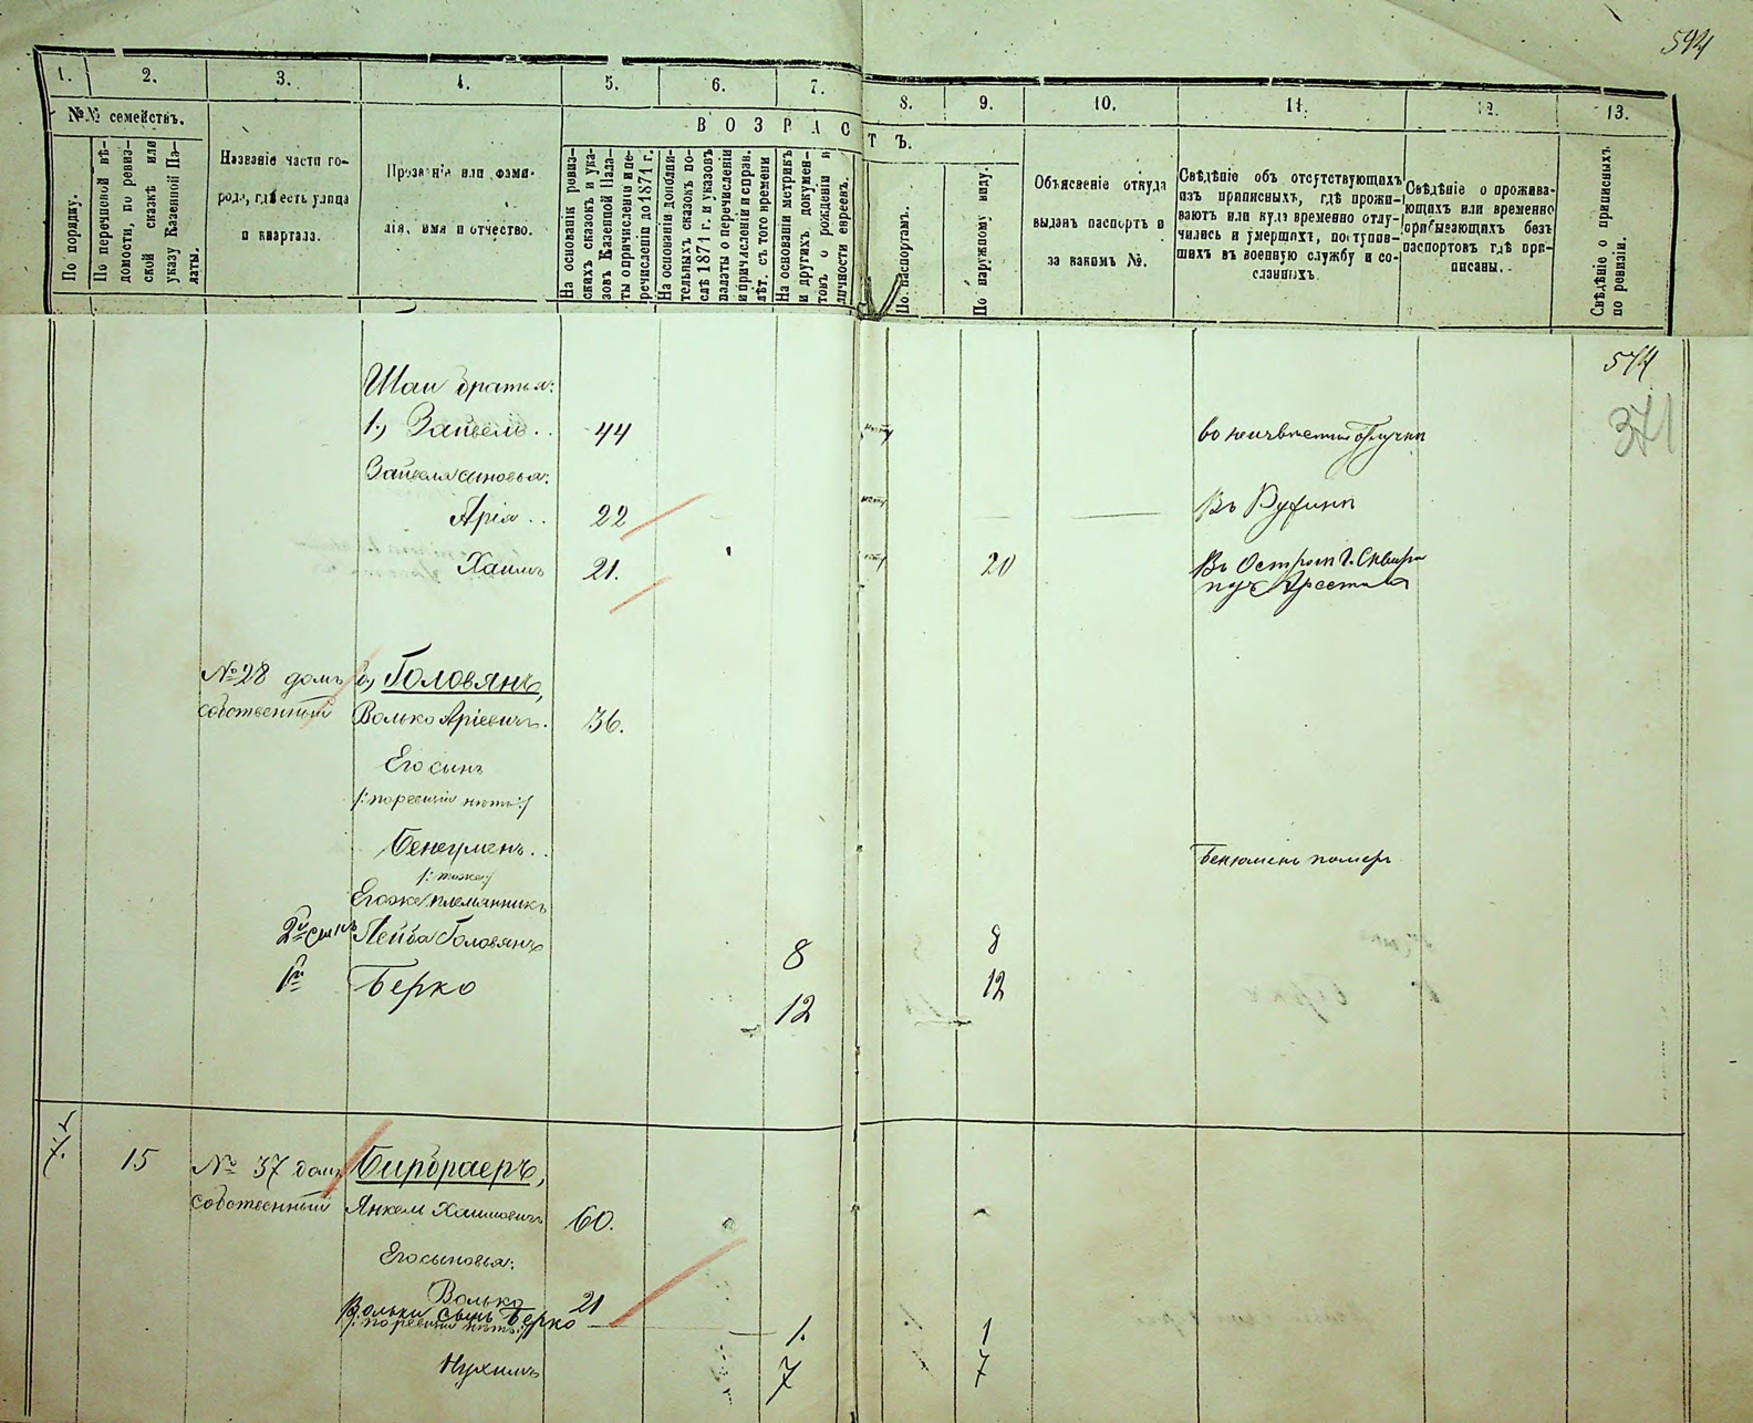 594
1. 2. 3. 4. 5. 6. 7. 8. 9. 10. 11. 12. 13.
№№ семействъ.
По порядку.
По перечневой вѣ-
домости, по ревиз-
ской сказкѣ или
указу Казенной Па-
латы.
Названіе части го-
рода, гдѣ есть улица
и квартала.
Прозваніе или фами-
лія, имя и отчество.
ВОЗРАСТЪ.
На основаніи ревиз-
скихъ сказокъ и ука-
зовъ Казенной Пала-
ты о причисленіи и пе-
речисленіи до 1871 г.
На основаніи дополни-
тельныхъ сказокъ по-
слѣ 1871 г. и указовъ
палаты о перечисленіи
и причисленіи и справ.
лѣт. съ того времени
На основаніи метрикъ
и другихъ докумен-
товъ о рожденіи и
личности евреевъ.
По паспортамъ.
По наружному виду.
Объясненіе откуда
выданъ паспортъ и
за какимъ №.
Свѣдѣніе объ отсутствующихъ
изъ приписныхъ, гдѣ прожи-
ваютъ или куда временно отлу-
чились и умершихъ, поступив-
шихъ въ военную службу и со-
сланныхъ.
Свѣдѣніе о прожива-
ющихъ или временно
пребывающихъ безъ
паспортовъ гдѣ при-
писаны.
Свѣдѣніе о приписныхъ
по ревизіи.
574
371
Шаи братья:
1., Зайвель.. 44
Зайвеля сыновья:
Арія.. 22
Хаимъ 21. 20 Въ Острогѣ г. Сквира
№ 28 домъ б., Головянъ,
собственный Волько Аріевичъ. 36.
Его сынъ
/:по ревизіи нѣтъ:/
Бенеумень.. Бенюмень померъ
/:тоже:/
Его же племянникъ
2й сынъ Лейба Головянъ 8 8
1й Берко 12 12
7. 15 № 37 домъ Бирбраеръ,
собственный Янкель Хаимовичъ 60.
Его сыновья:
Волько 21
Вольки сынъ Берко 1. 1
/:по ревизіи нѣтъ:/
Нухимъ 7 7